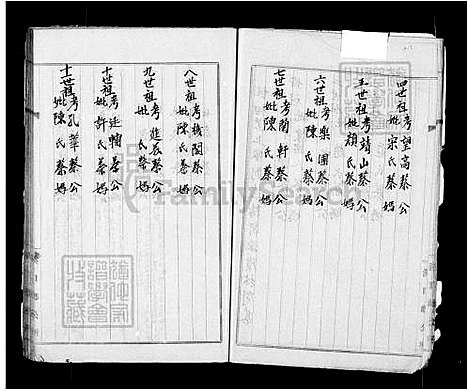 四世祖考望高蔡公
妣宋氏蔡媽
五世祖考靖山蔡公
妣顏氏蔡媽
六世祖考樂圃蔡公
妣陳氏蔡媽
七世祖考蘭軒蔡公
妣陳氏蔡媽
八世祖考樸閣蔡公
妣陳氏蔡媽
九世祖考進辰蔡公
妣氏蔡媽
十世祖考廷帽蔡公
妣許氏蔡媽
十一世祖考孔華蔡公
妣陳氏蔡媽
FamilySearch